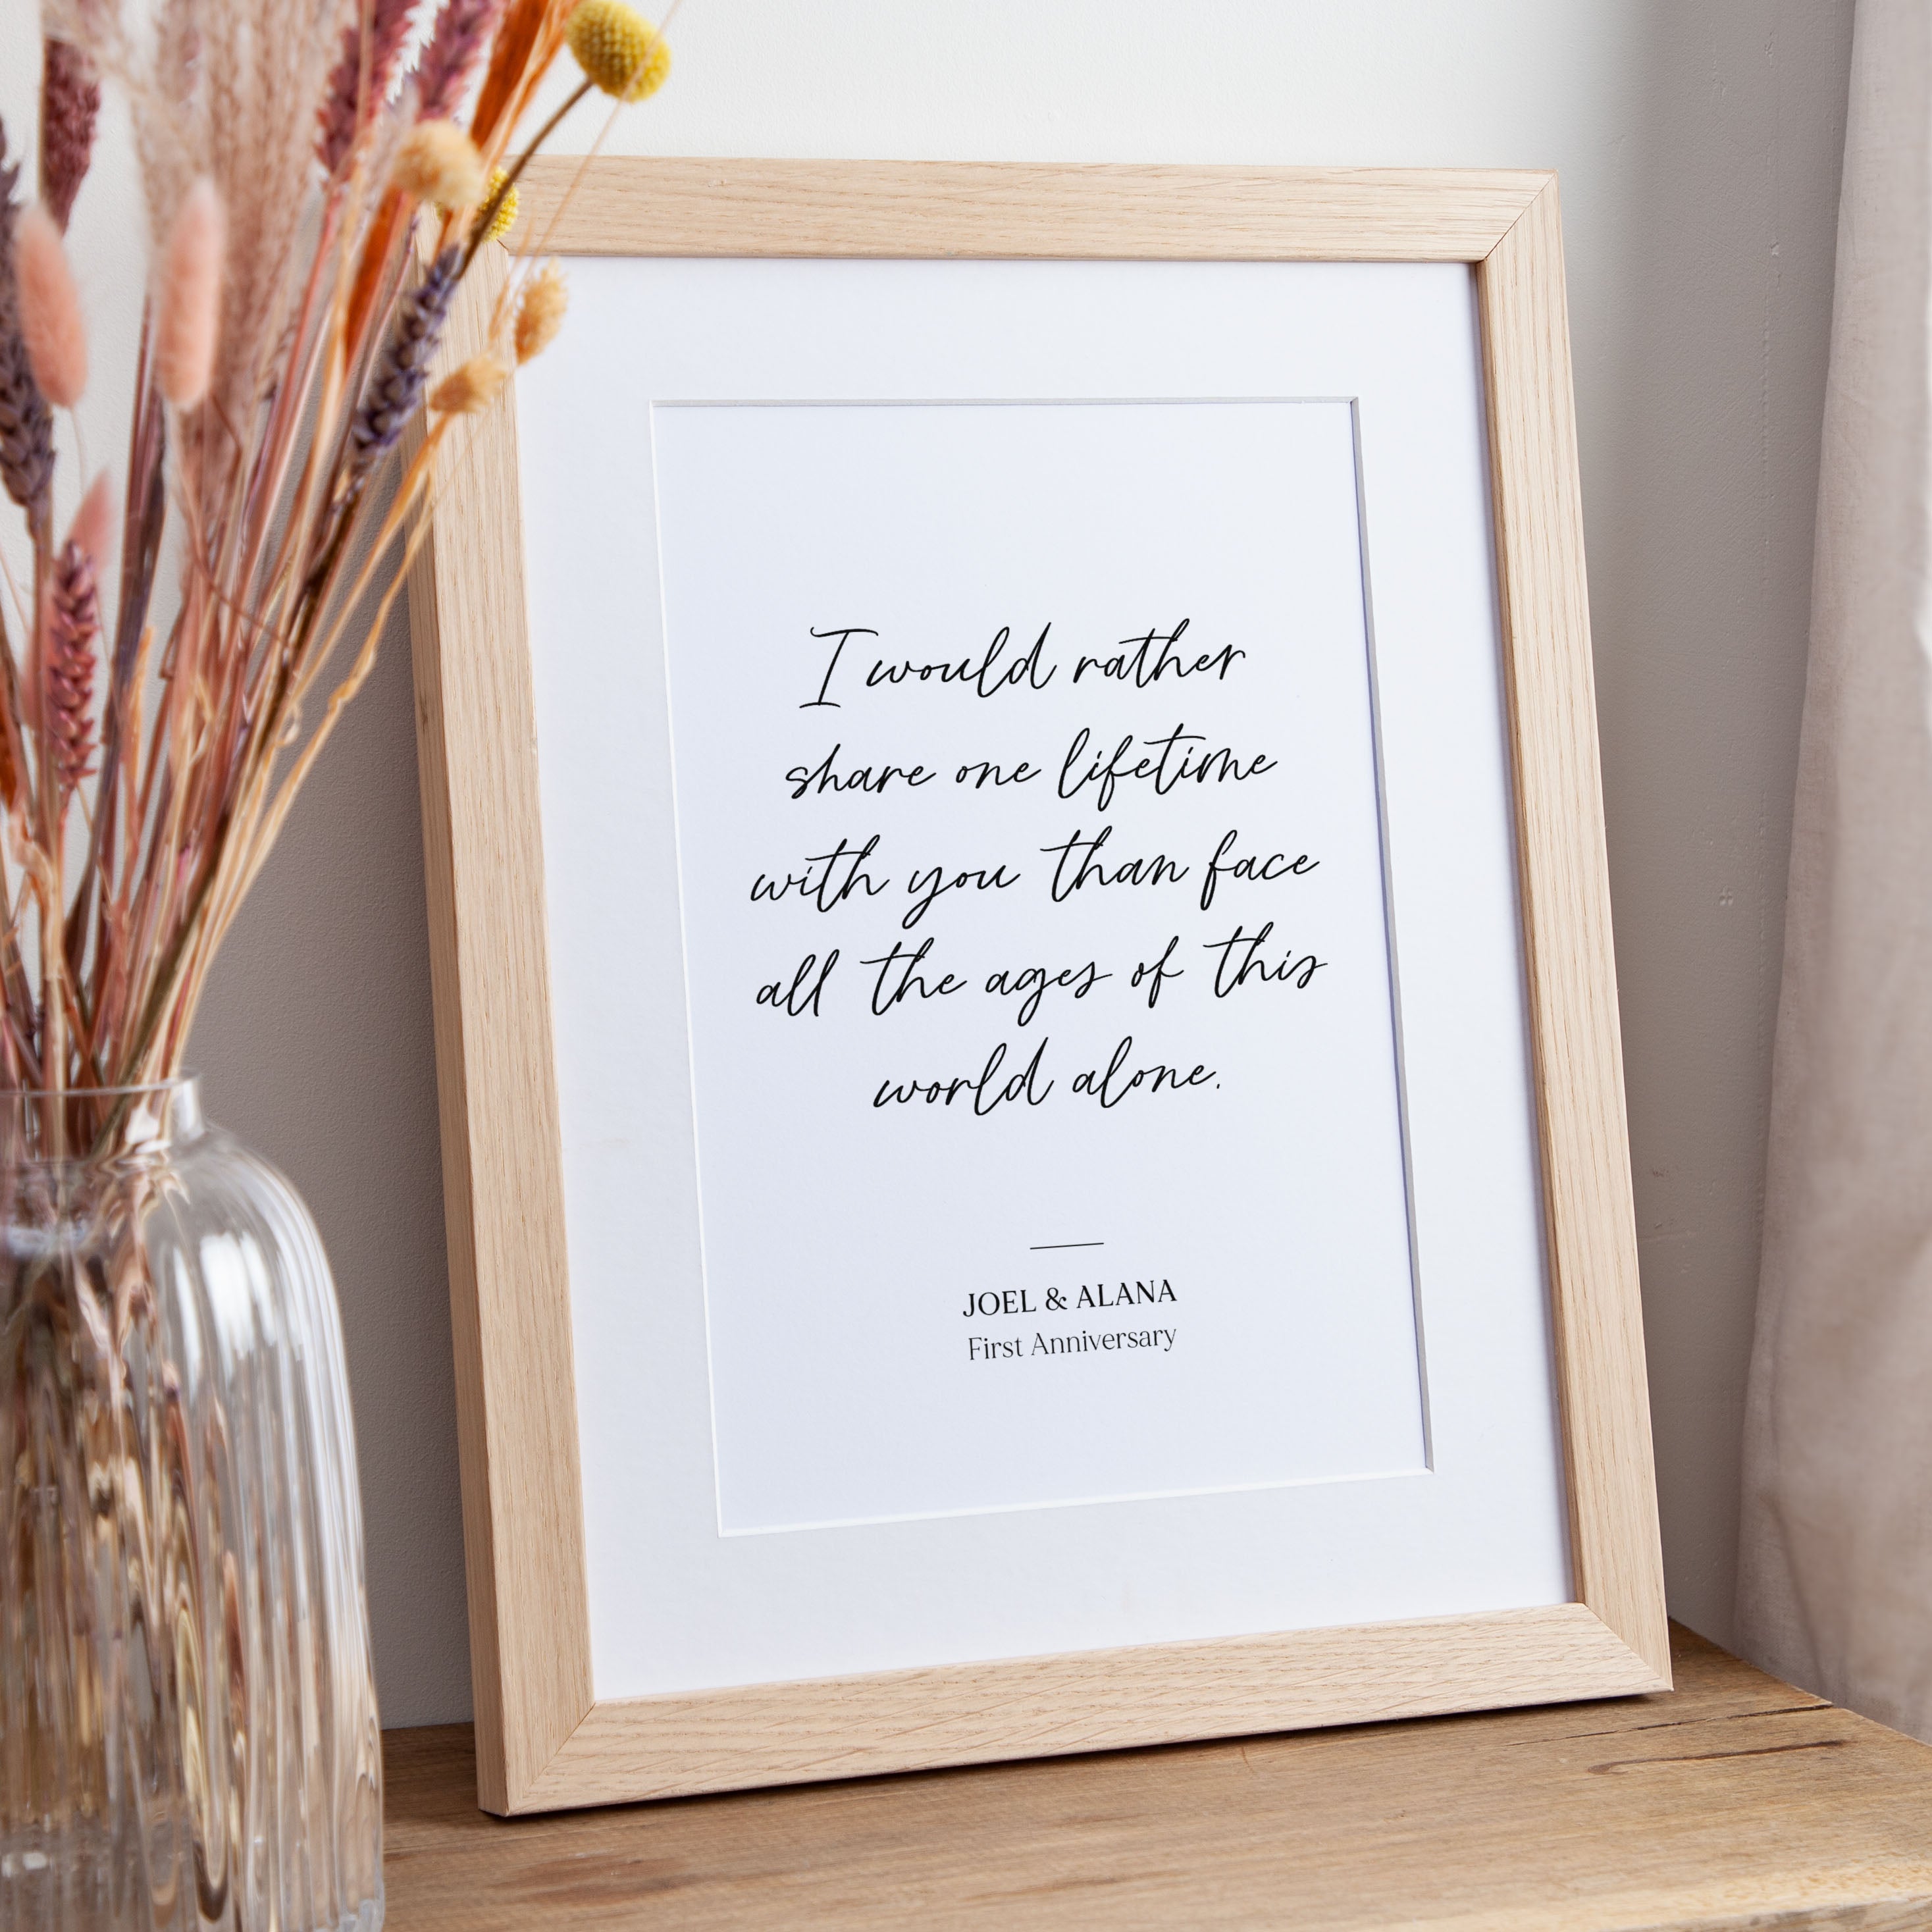 I would rather
share one lifetime
with you than face
all the ages of this
world alone.
JOEL & ALANA
First Anniversary